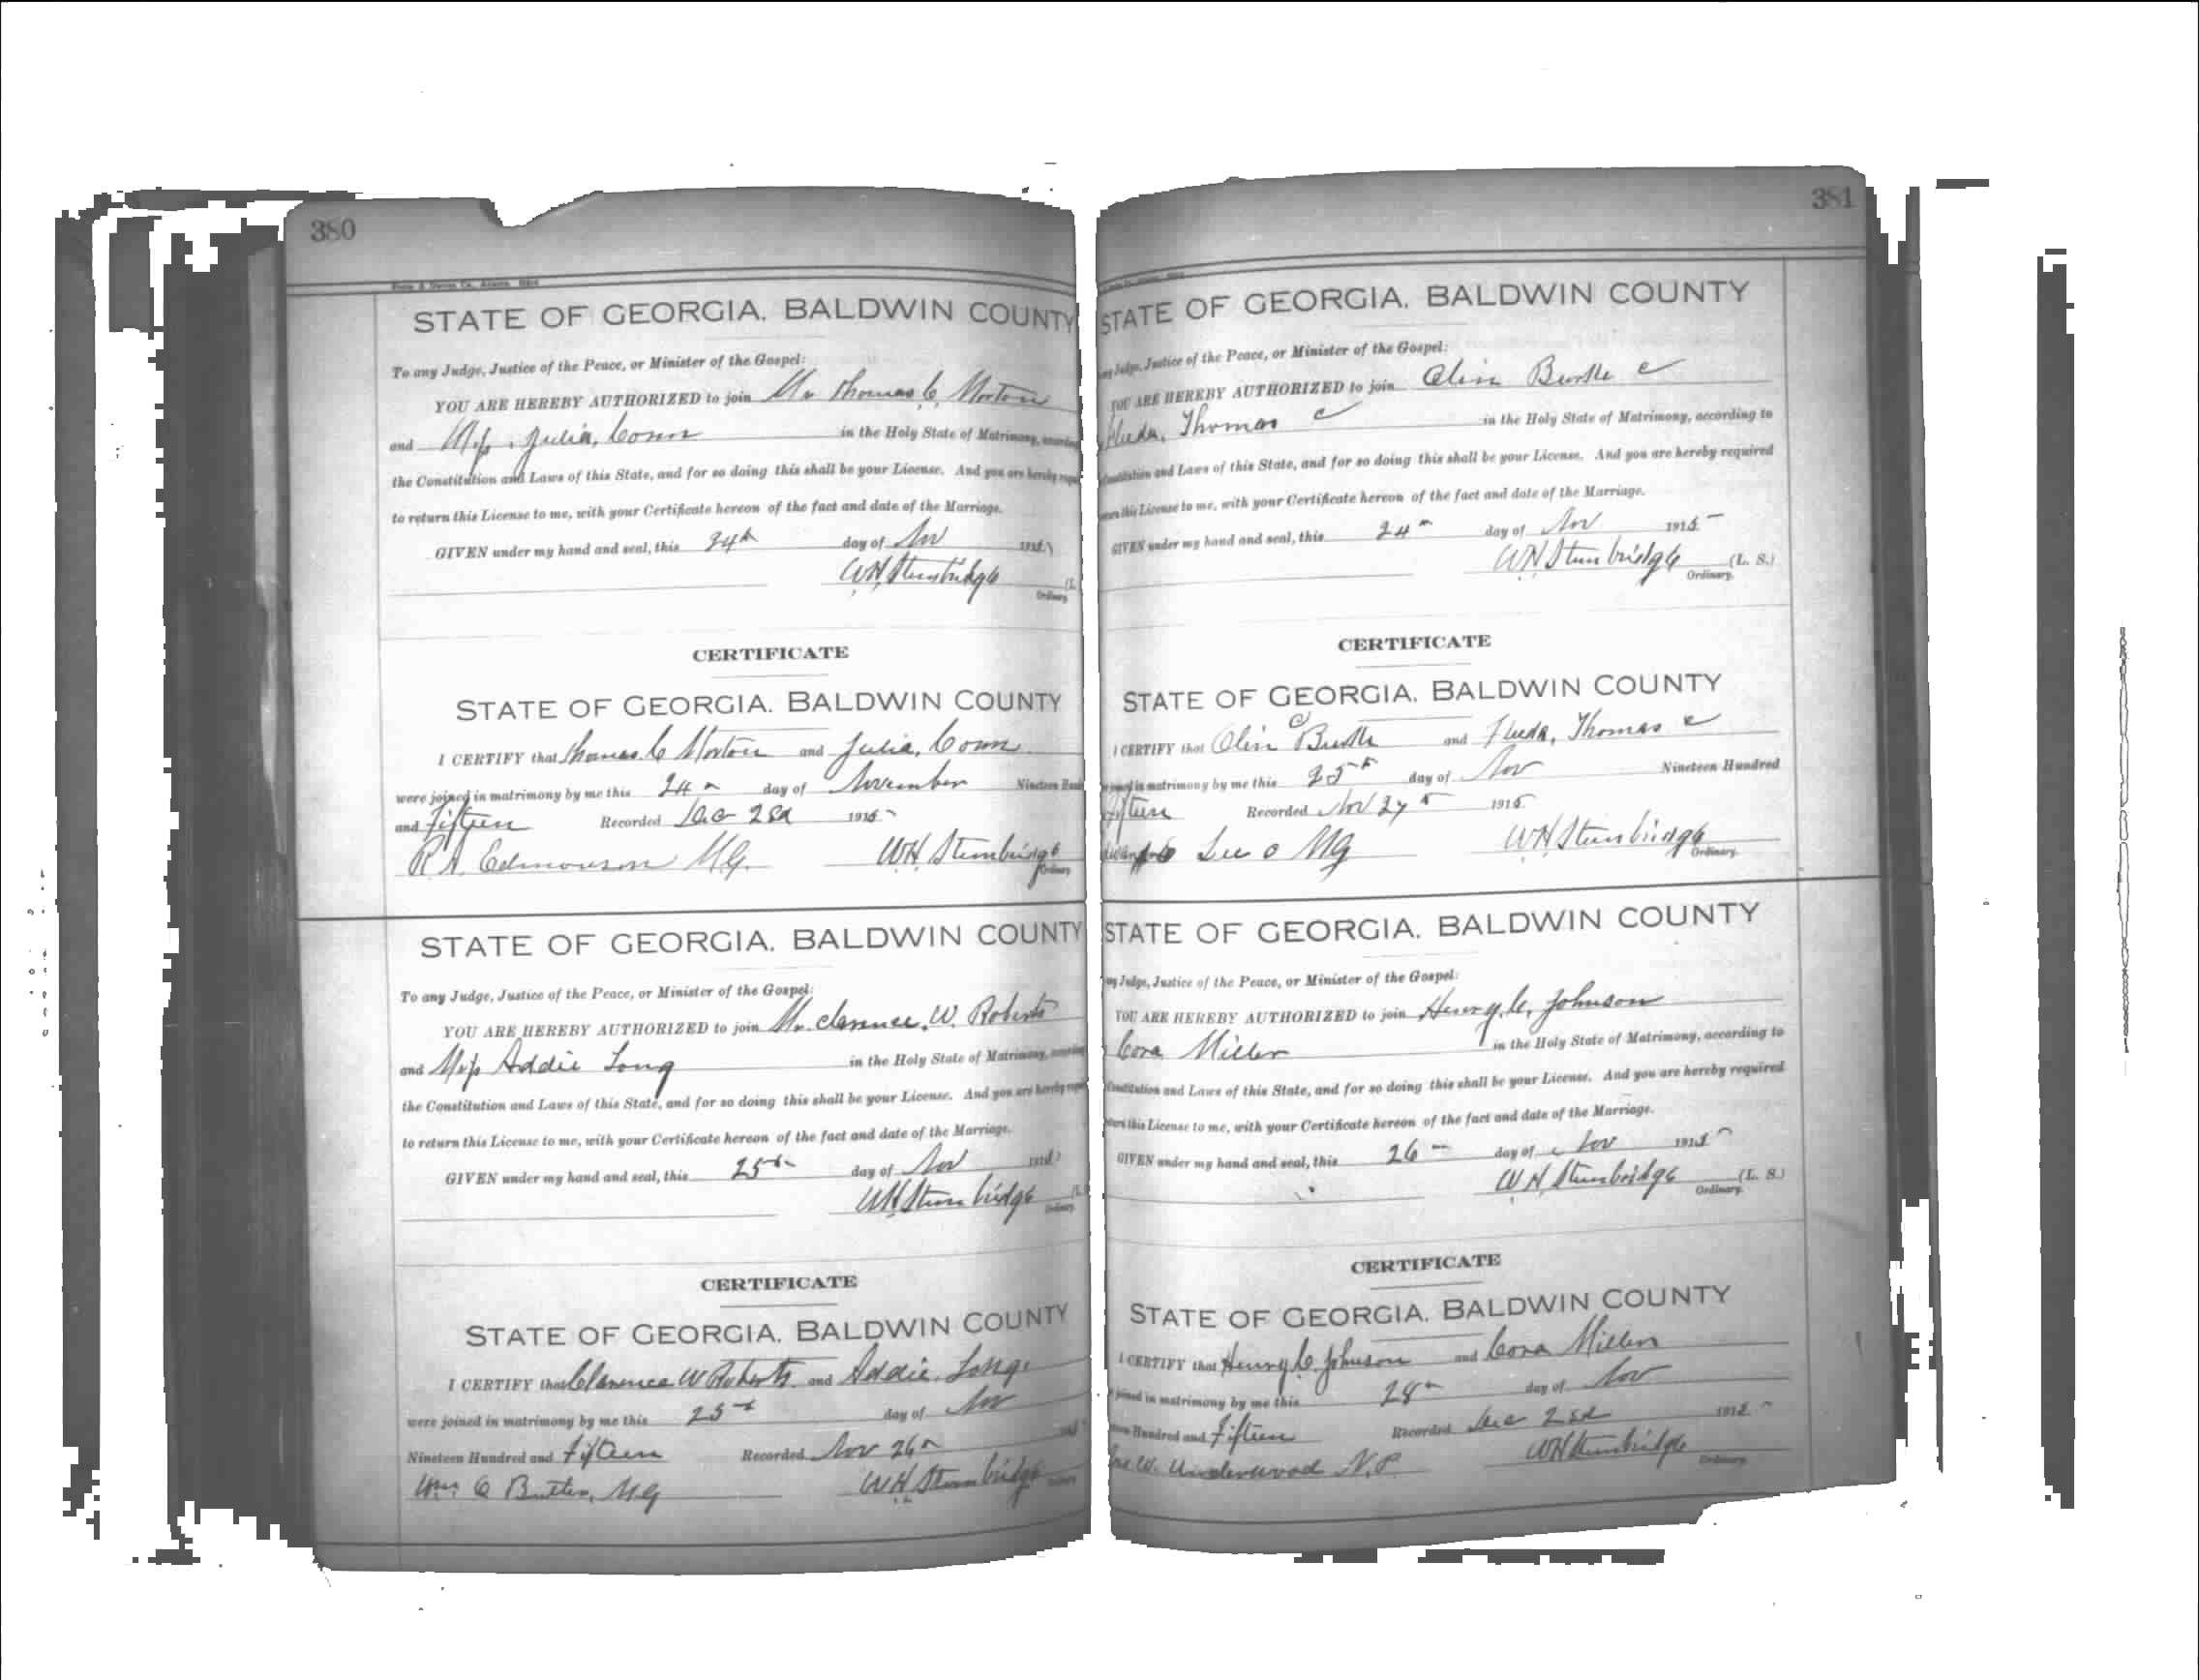 380
STATE OF GEORGIA. BALDWIN COUNTY
To any Judge, Justice of the Peace, or Minister of the Gospel:
YOU ARE HEREBY AUTHORIZED to join Mr Thomas C. Morton
and Miss Julia, Conn in the Holy State of Matrimony,
the Constitution and Laws of this State, and for so doing this shall be your License. And you are hereby
to return this License to me, with your Certificate hereon of the fact and date of the Marriage.
GIVEN under my hand and seal, this 24th day of Nov 1915
W.H. Stembridge (L.
Ordinary.
CERTIFICATE
STATE OF GEORGIA. BALDWIN COUNTY
I CERTIFY that Thomas C Morton and Julia, Conn
were joined in matrimony by me this 24th day of November Nineteen
and Fifteen Recorded Dec 2nd 1915
R A. Edmonson M.G. W.H. Stembridge
Ordinary
STATE OF GEORGIA. BALDWIN COUNTY
To any Judge, Justice of the Peace, or Minister of the Gospel:
YOU ARE HEREBY AUTHORIZED to join Mr. Clarence. W. Roberts
and Miss Addie Long in the Holy State of Matrimony,
the Constitution and Laws of this State, and for so doing this shall be your License. And you are hereby
to return this License to me, with your Certificate hereon of the fact and date of the Marriage.
GIVEN under my hand and seal, this 25th day of Nov
W.H. Stembridge
Ordinary.
CERTIFICATE
STATE OF GEORGIA. BALDWIN COUNTY
I CERTIFY that Clarence W Roberts and Addie. Long.
were joined in matrimony by me this 25th day of Nov
Nineteen Hundred and Fifteen Recorded Nov 26th
Wm C Butler, M.G W.H. Stembridge
381
STATE OF GEORGIA. BALDWIN COUNTY
Judge, Justice of the Peace, or Minister of the Gospel:
YOU ARE HEREBY AUTHORIZED to join Olin c
Thomas c in the Holy State of Matrimony, according to
Constitution and Laws of this State, and for so doing this shall be your License. And you are hereby required
this License to me, with your Certificate hereon of the fact and date of the Marriage.
GIVEN under my hand and seal, this 24th day of Nov 1915
W.H. Stembridge (L. S.)
Ordinary.
CERTIFICATE
STATE OF GEORGIA. BALDWIN COUNTY
I CERTIFY that Olin c and Thomas c
joined in matrimony by me this 25th day of Nov Nineteen Hundred
Fifteen Recorded Nov 27th 1915
Lee MG W.H. Stembridge
Ordinary.
STATE OF GEORGIA. BALDWIN COUNTY
Judge, Justice of the Peace, or Minister of the Gospel:
YOU ARE HEREBY AUTHORIZED to join Henry. C. Johnson
Cora Miller in the Holy State of Matrimony, according to
Constitution and Laws of this State, and for so doing this shall be your License. And you are hereby required
this License to me, with your Certificate hereon of the fact and date of the Marriage.
GIVEN under my hand and seal, this 26 day of Nov 1915
W.H. Stembridge (L. S.)
Ordinary.
CERTIFICATE
STATE OF GEORGIA. BALDWIN COUNTY
I CERTIFY that Henry C. Johnson and Cora Miller
joined in matrimony by me this 28th day of Nov
Hundred and Fifteen Recorded Dec 2nd 1915
W. Underwood N.P. W.H. Stembridge
Ordinary